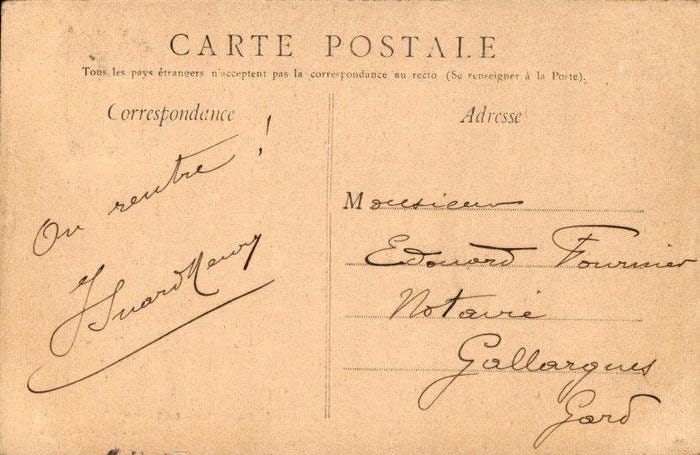 CARTE POSTALE
Tous les pays étrangers n'acceptent pas la correspondance au recto (Se renseigner à la Poste).
Correspondance
On rentre !
Adresse
Monsieur
Edouard Fournier
Notaire
Gallargues
Gard